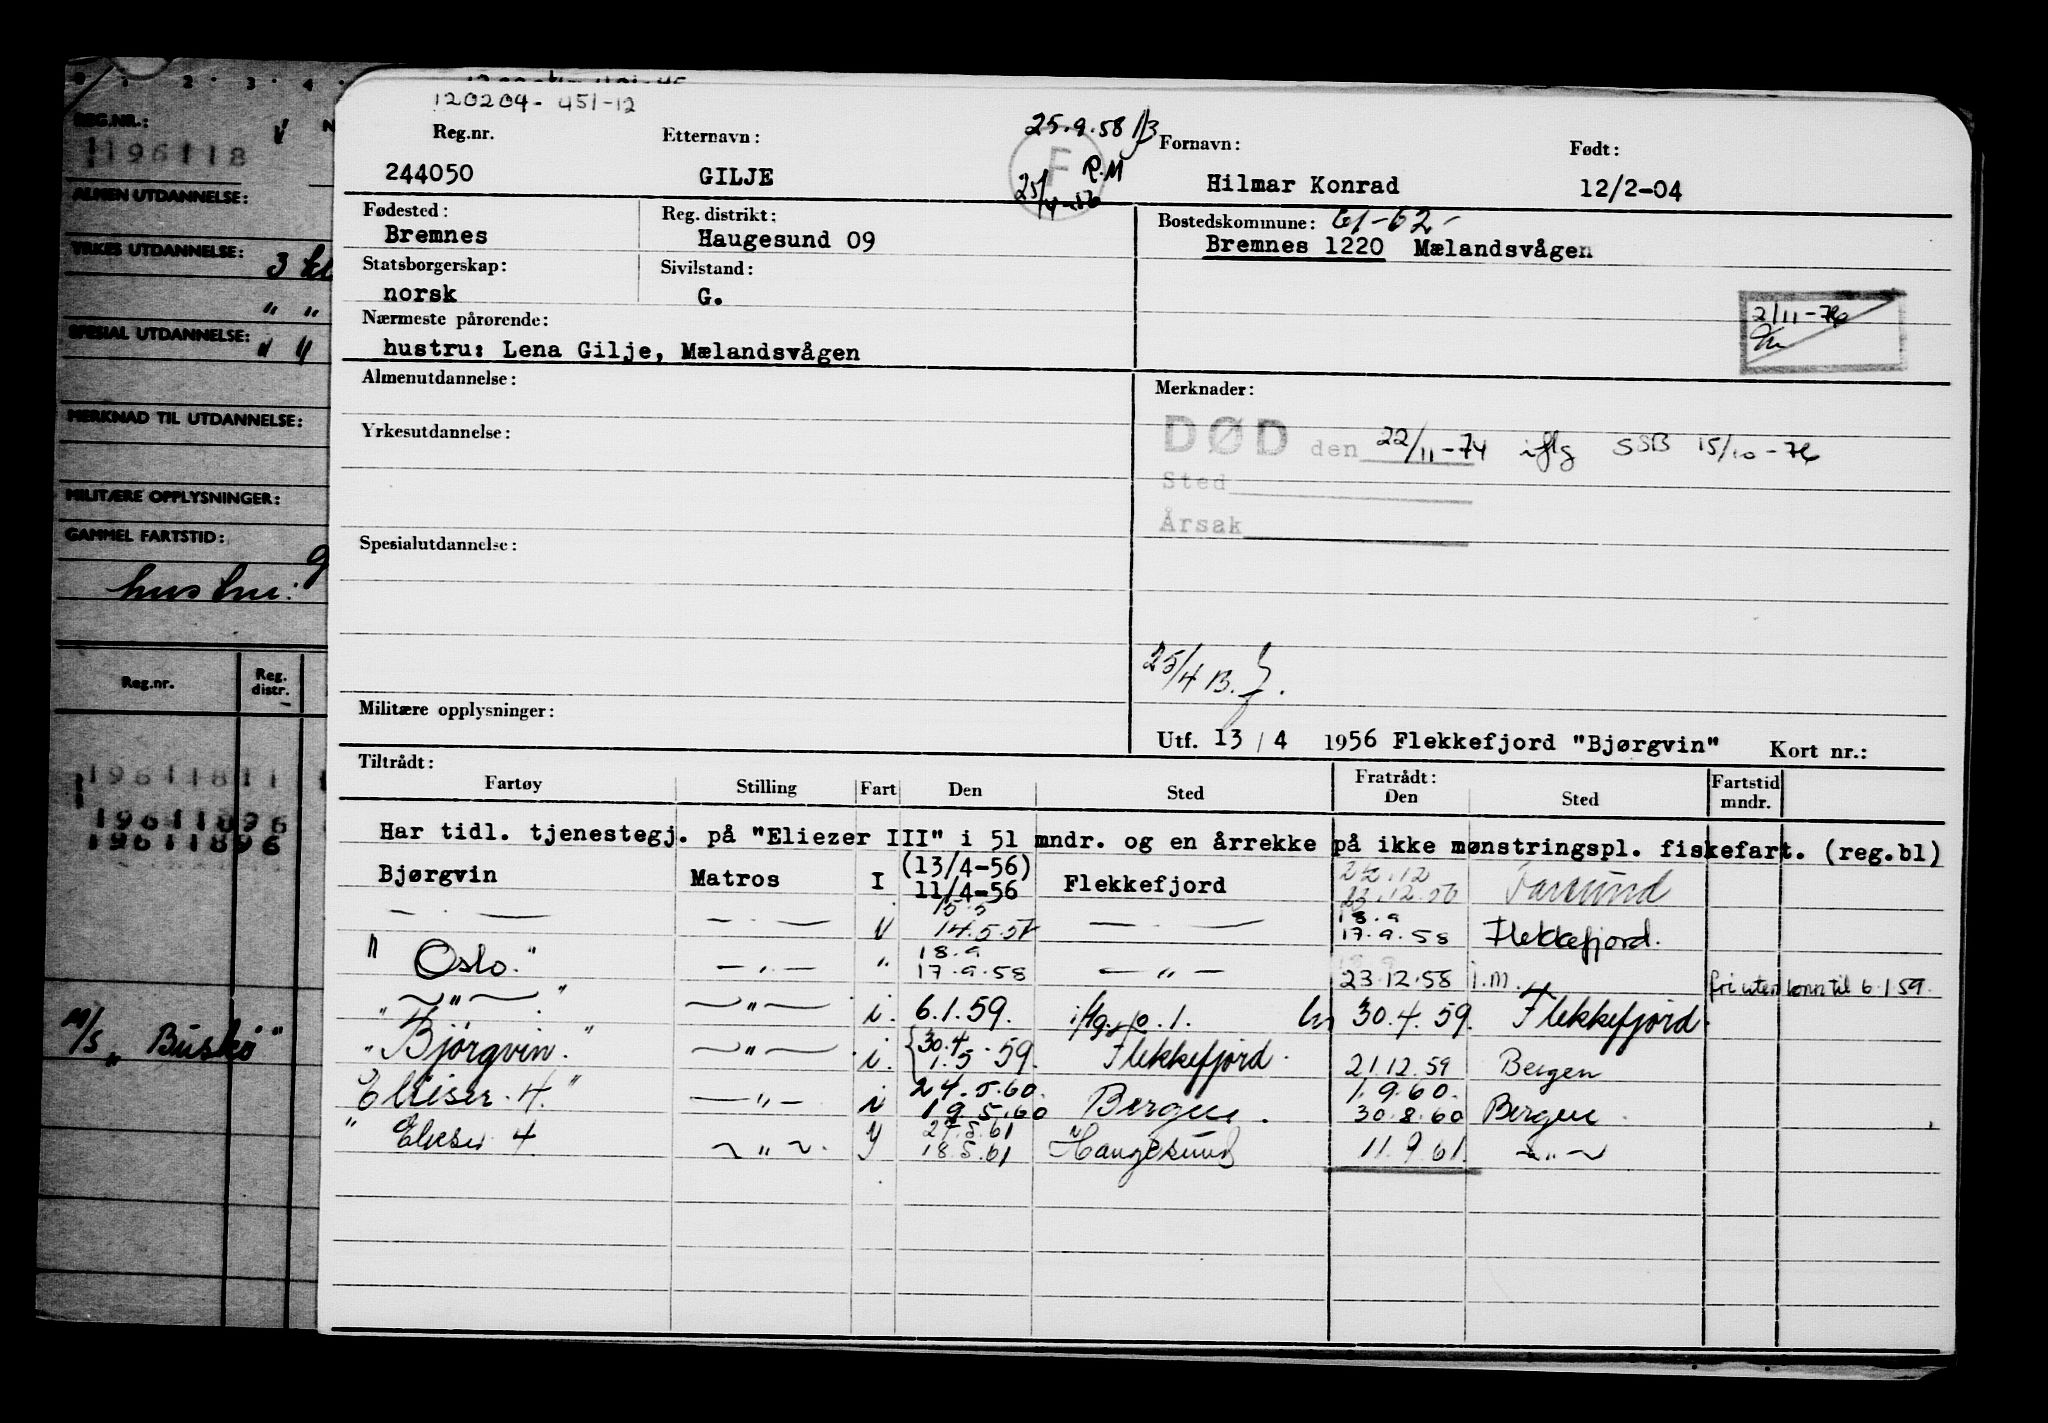 120204- 451-12
Reg.nr. Etternavn: 25.9.58 Fornavn: Født:
244050 GILJE F R.M Hilmar Konrad 12/2-04
25/4-56
Fødested: Reg. distrikt: Bostedskommune: 61-62-
Bremnes Haugesund 09 Bremnes 1220 Mælandsvågen
Statsborgerskap: Sivilstand:
norsk G.
Nærmeste pårørende: 2/11-76
hustru: Lena Gilje, Mælandsvågen
Almenutdannelse: Merknader:
Yrkesutdannelse: DØD den 22/11-74 iflg SSB 15/10-76
Sted
Årsak
Spesialutdannelse:
25/4 B.J.
Militære opplysninger:
Utf. 13/4 1956 Flekkefjord "Bjørgvin" Kort nr.:
Tiltrådt: Fratrådt: Fartstid
Fartøy Stilling Fart Den Sted Den Sted mndr.
Har tidl. tjenestegj. på "Eliezer III" i 51 mndr. og en årrekke på ikke mønstringspl. fiskefart. (reg.bl)
Bjørgvin Matros I (13/4-56) 11/4-56 Flekkefjord 22.12 23.12.56 Farsund
— . — — . — 15.5 14.5.57 — — 18.9 17.9.58 Flekkefjord.
" Oslo." — " — " 18.9 17.9.58 — " — 23.12.58 i.m. fri uten lønn til 6.1.59.
" — " — " — " — i. 6.1.59. iflg. p.l. 30.4.59. Flekkefjord.
" Bjørgvin." — " — i. 30.4 1.5.59. Flekkefjord. 21.12.59 Bergen
Elieser. 4." — " — i 24.5.60. 19.5.60 Bergen. 1.9.60. 30.8.60 Bergen.
" Elieser 4 — " — 18.5.61 Haugesund 11.9.61. — " —
0 1 2 3 4
REG.NR.:
196118
ALMEN UTDANNELSE:
YRKES UTDANNELSE: 3
" "
SPESIAL UTDANNELSE:
MERKNAD TIL UTDANNELSE:
MILITÆRE OPPLYSNINGER:
GAMMEL FARTSTID:
hustru:
Reg.nr. Reg. distr.
19611811
19611896
19611896
M/S "Buskø"